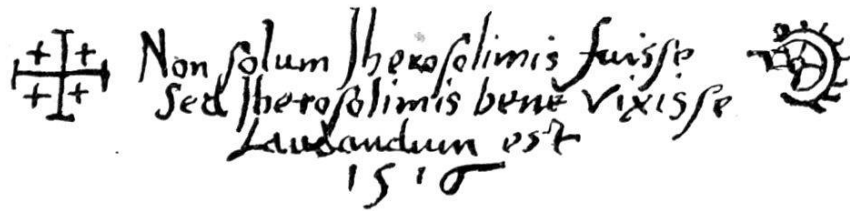 Non solum Iherosolimis fuisse
sed Iherosolimis bene vixisse
Laudandum est
1516